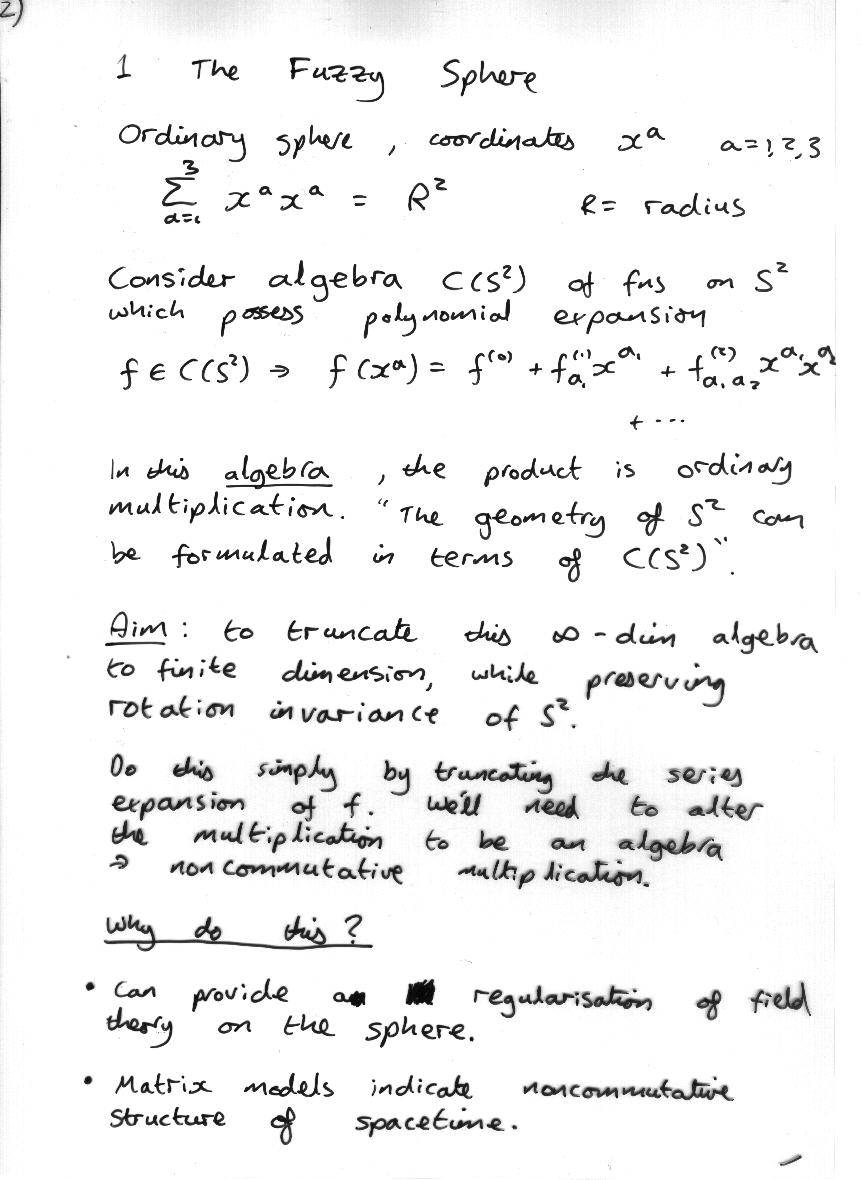 2)
1 The Fuzzy Sphere
Ordinary sphere , coordinates xᵃ a=1,2,3
∑³ₐ₌₁ xᵃxᵃ = R² R= radius
Consider algebra C(S²) of fns on S²
which possess polynomial expansion
f ∈ C(S²) ⇒ f(xᵃ) = f⁽⁰⁾ + f⁽¹⁾_{a₁} x^{a₁} + f⁽²⁾_{a₁a₂} x^{a₁}x^{a₂}
+ ...
In this algebra , the product is ordinary
multiplication. "The geometry of S² can
be formulated in terms of C(S²)".
Aim : to truncate this ∞-dim algebra
to finite dimension, while preserving
rotation invariance of S².
Do this simply by truncating the series
expansion of f. We'll need to alter
the multiplication to be an algebra
⇒ noncommutative multiplication.
Why do this ?
• Can provide a regularisation of field
theory on the sphere.
• Matrix models indicate noncommutative
structure of spacetime.